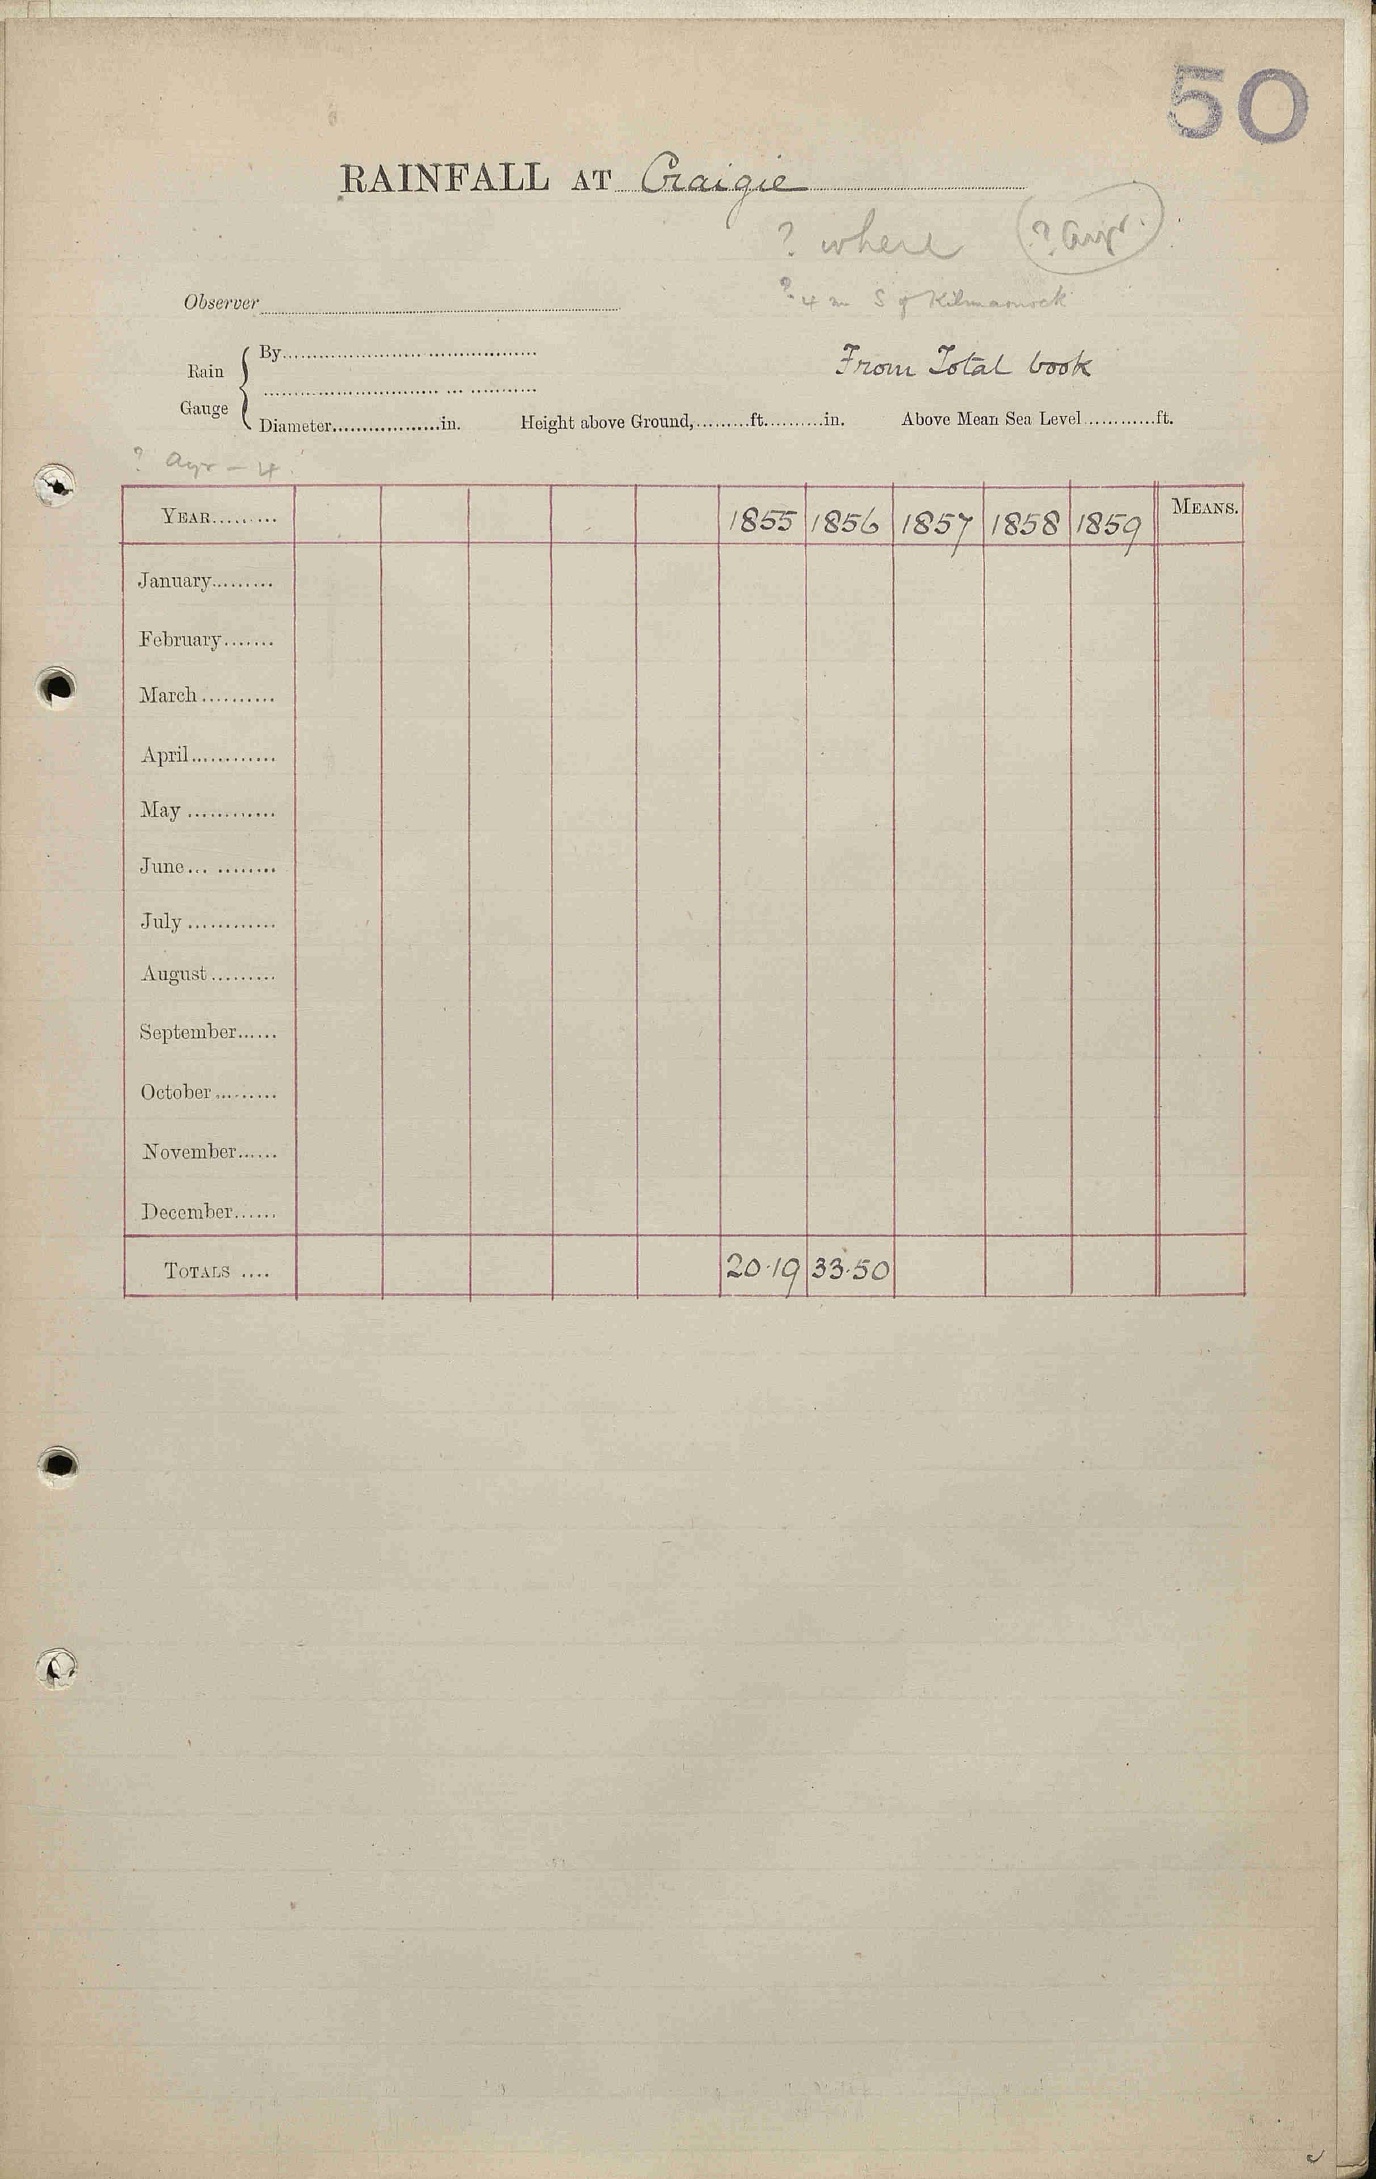 50
RAINFALL AT Craigie
? where ? Ayr
Observer
? 4 m S of Kilmarnock
Rain Gauge
By
From Total book
Diameter in. Height above Ground, ft. in. Above Mean Sea Level ft.
? Ayr - 4
YEAR 1855 1856 1857 1858 1859 MEANS.
January
February
March
April
May
June
July
August
September
October
November
December
TOTALS 20.19 33.50